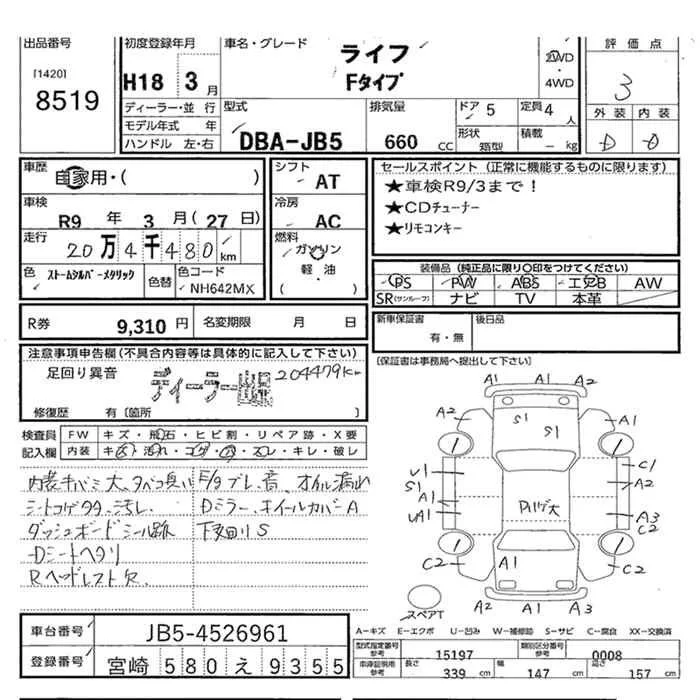 出品番号
[1420]
8519
初度登録年月
H18 3月
車名・グレード
ライフ
Fタイプ
2WD
・
4WD
評価点
3
外装 内装
D D
ディーラー・並行
モデル年式 年
ハンドル 左・右
型式
DBA-JB5
排気量
660 CC
ドア 5
定員 4人
形状 箱型
積載 - kg
車歴
自家用・( )
車検
R9年 3月(27日)
走行
20万4千480km
色
ストームシルバーメタリック
色替
色コード
NH642MX
シフト
AT
冷房
AC
燃料
ガソリン
軽・油
( )
セールスポイント(正常に機能するものに限ります)
★車検R9/3まで!
★CDチューナー
★リモコンキー
装備品(純正品に限り○印をつけてください)
PS PW ABS エアB AW
SR(サンルーフ) ナビ TV 本革
R券 9,310円 名変期限 月 日
新車保証書
有・無
後日品
[保証書は事務局へ提出して下さい]
注意事項申告欄(不具合内容等は具体的に記入して下さい)
足回り異音
ディーラー出品
204479km
修復歴 有〔箇所 〕
検査員
記入欄
FW キズ・飛石・ヒビ割・リペア跡・X要
内装 キズ・汚れ・コゲ・穴・スレ・キレ・破レ
内装キバミ大、タバコ臭い
シートコゲタタ、汚レ
ダッシュボードシール跡
Dシートヘタリ
Rヘッドレスト欠
F/タブレ、音、オイル漏れ
Dミラー、ホイールカバーA
下回りS
A1
A1 A1
A2 A1
S1
S1
U1
S1
A1
UA1
C1
A2
A3
C2
C2 C2
A1
A2 A1 A2
スペアT
A-キズ E-エクボ U-凹み W-補修跡 S-サビ C-腐食 XX-交換済
車台番号
JB5-4526961
登録番号
宮崎 580 え 9355
型式指定番号
参考
15197
類別区分番号
参考
0008
車庫証明用
参考
長さ
339 cm
幅
147 cm
高さ
157 cm